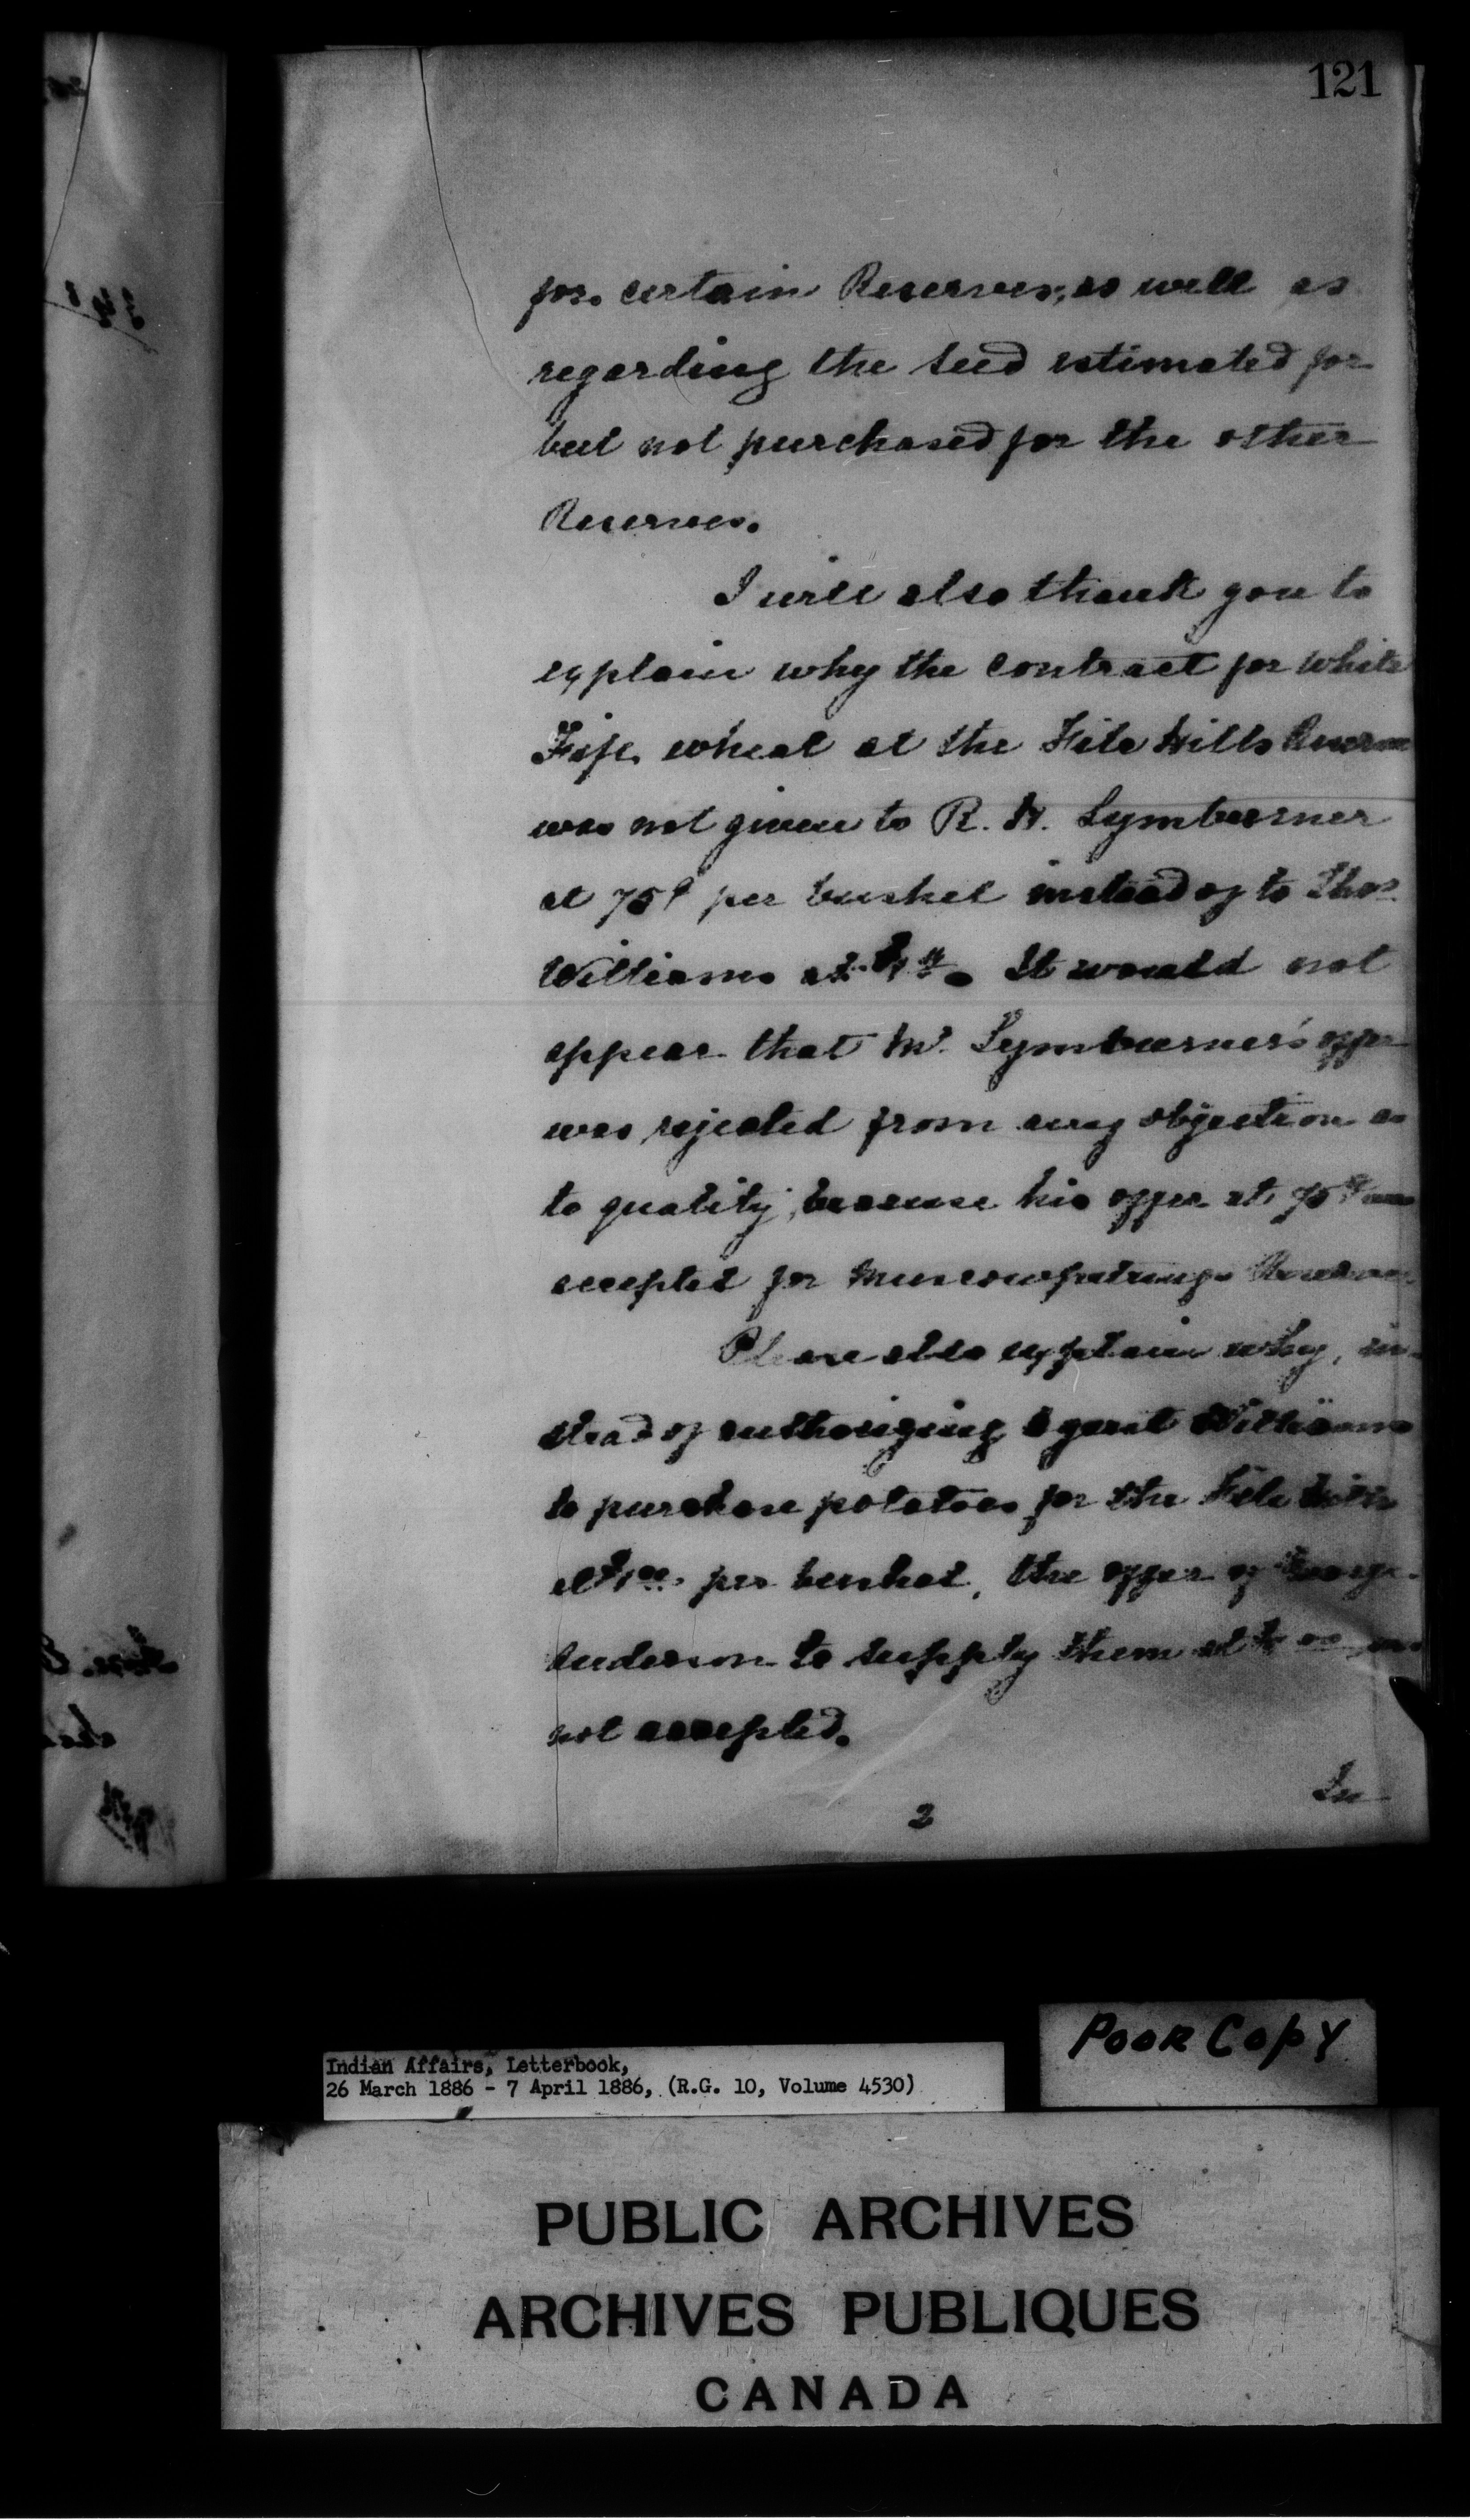 121
for certain Reserves, as well as
regarding the seed estimated for
but not purchased for the other
Reserves.
I will also thank you to
explain why the contract for White
Fife wheat at the File Hills Reserve
was not given to R. H. Lymburner
at 75¢ per bushel instead of to Thos.
Williams at It would not
appear that Mr. Lymburner's offer
was rejected from any objection as
to quality, because his offer at 75¢ was
accepted for Muscowpetungs Reserve.
Please also explain why, in-
stead of authorizing Agent Williams
to purchase potatoes for the File Hills
at $1.00 per bushel, the offer of George
Anderson to supply them at
not accepted.
2
In
Poor Copy
Indian Affairs, Letterbook,
26 March 1886 - 7 April 1886, (R.G. 10, Volume 4530)
PUBLIC ARCHIVES
ARCHIVES PUBLIQUES
CANADA